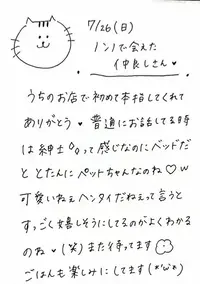 7/26(日)
ノンノで会えた
仲良しさん♥
うちのお店で初めて本指してくれて
ありがとう♥ 普通にお話してる時
は紳士°°って感じなのにベッドだ
ととたんにペットちゃんなのね♡w
可愛いねぇヘンタイだねぇって言うと
すっごく嬉しそうにしてるのがよくわかる
のね♥(笑)また待ってます
ごはんも楽しみにしてます(*'ω'*)